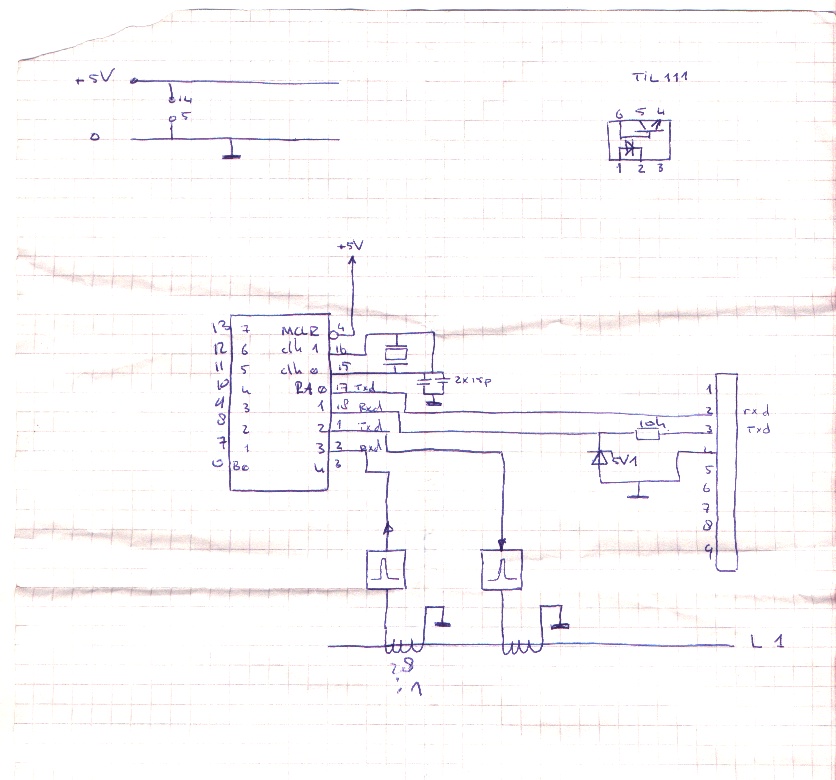 +5V
TIL 111
14
5
0
6 5 4
1 2 3
+5V
13 7 MCLR 4
12 6 clk 1 16
11 5 clk 0 15
2x15p
10 4 RA 0 17 Txd
9 3 1 18 Rxd
8 2 2 1 Txd
7 1 3 2 Rxd
B0 4 3
1
2 rxd
10k
3 Txd
4
5V1
5
6
7
8
9
L 1
: 1